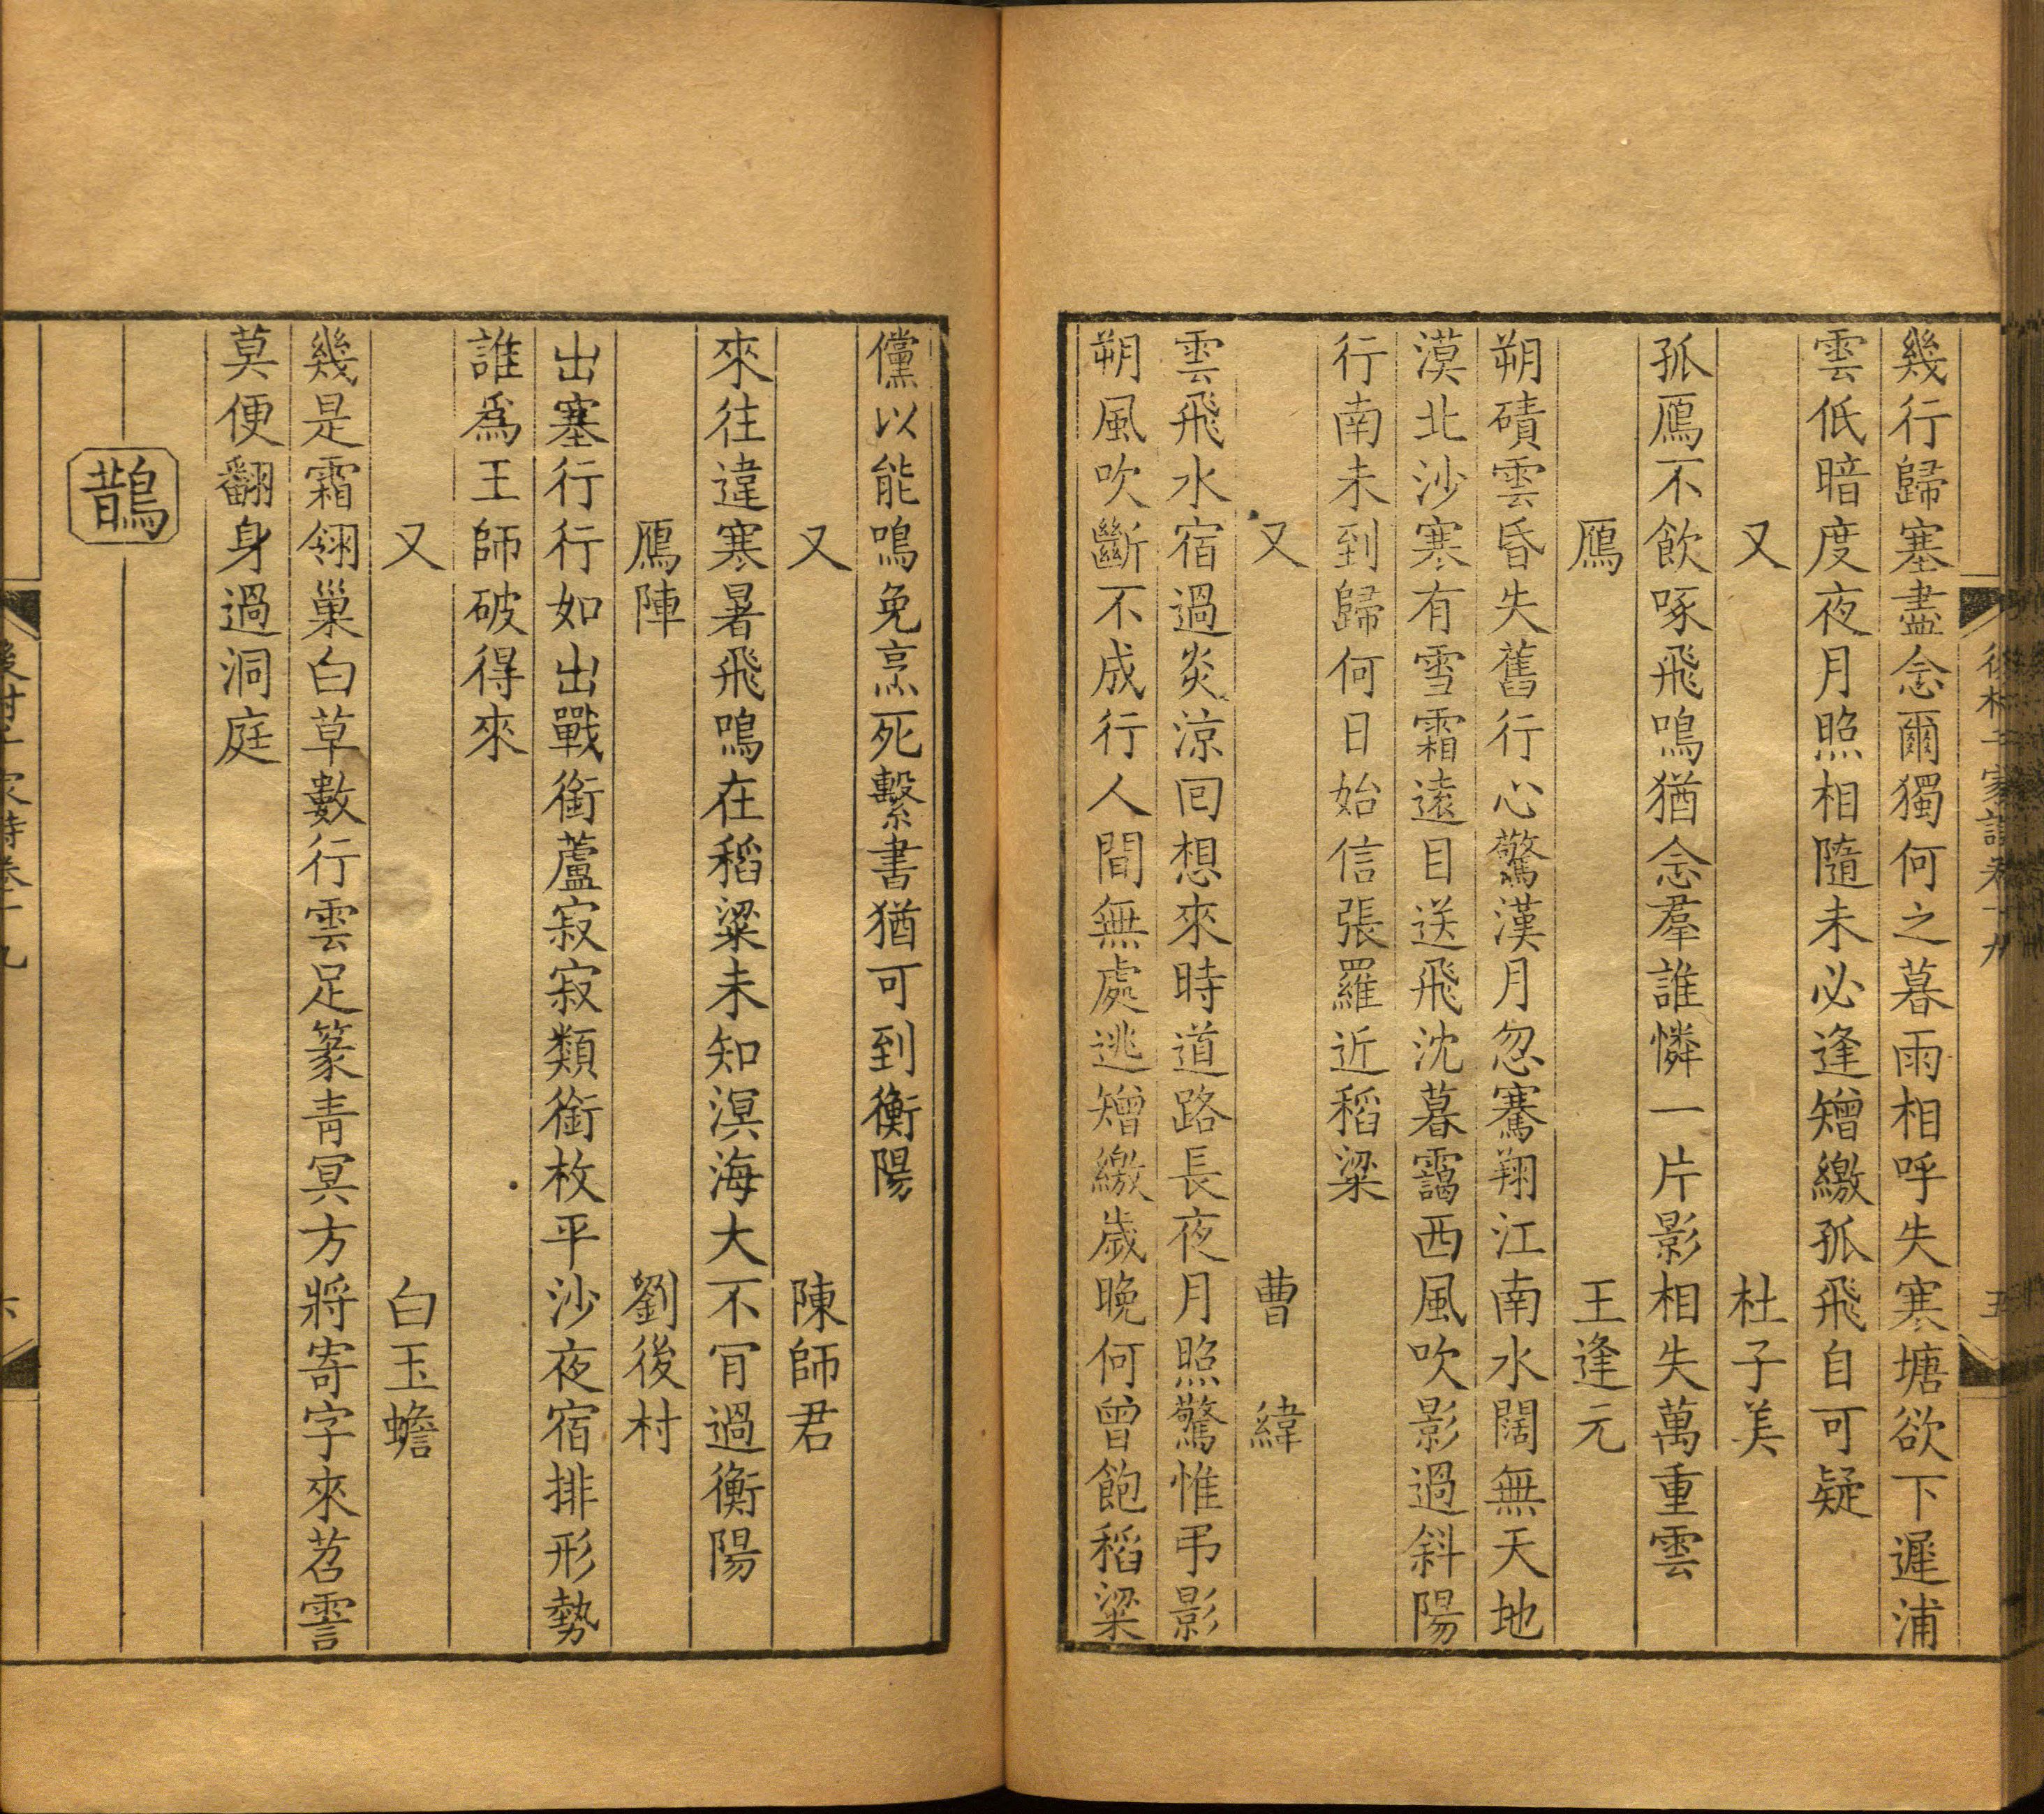 幾行歸塞盡念爾獨何之暮雨相呼失寒塘欲下遲浦
雲低暗度夜月照相隨未必逢矰繳孤飛自可疑
又 杜子美
孤鴈不飲啄飛鳴猶念羣誰憐一片影相失萬重雲
鴈 王逢元
朔磧雲昏失舊行心驚漢月忽騫翔江南水闊無天地
漠北沙寒有雪霜遠目送飛沈暮靄西風吹影過斜陽
行南未到歸何日始信張羅近稻粱
又 曹緯
雲飛水宿過炎涼回想來時道路長夜月照驚惟弔影
朔風吹斷不成行人間無處逃矰繳歲晚何曾飽稻粱
儻以能鳴免烹死繫書猶可到衡陽
又 陳師君
來往違寒暑飛鳴在稻粱未知溟海大不肎過衡陽
鴈陣 劉後村
出塞行行如出戰銜蘆寂寂類銜枚平沙夜宿排形勢
誰爲王師破得來
又 白玉蟾
幾是霜翎巢白草數行雲足篆青冥方將寄字來苕霅
莫便翻身過洞庭
鵲